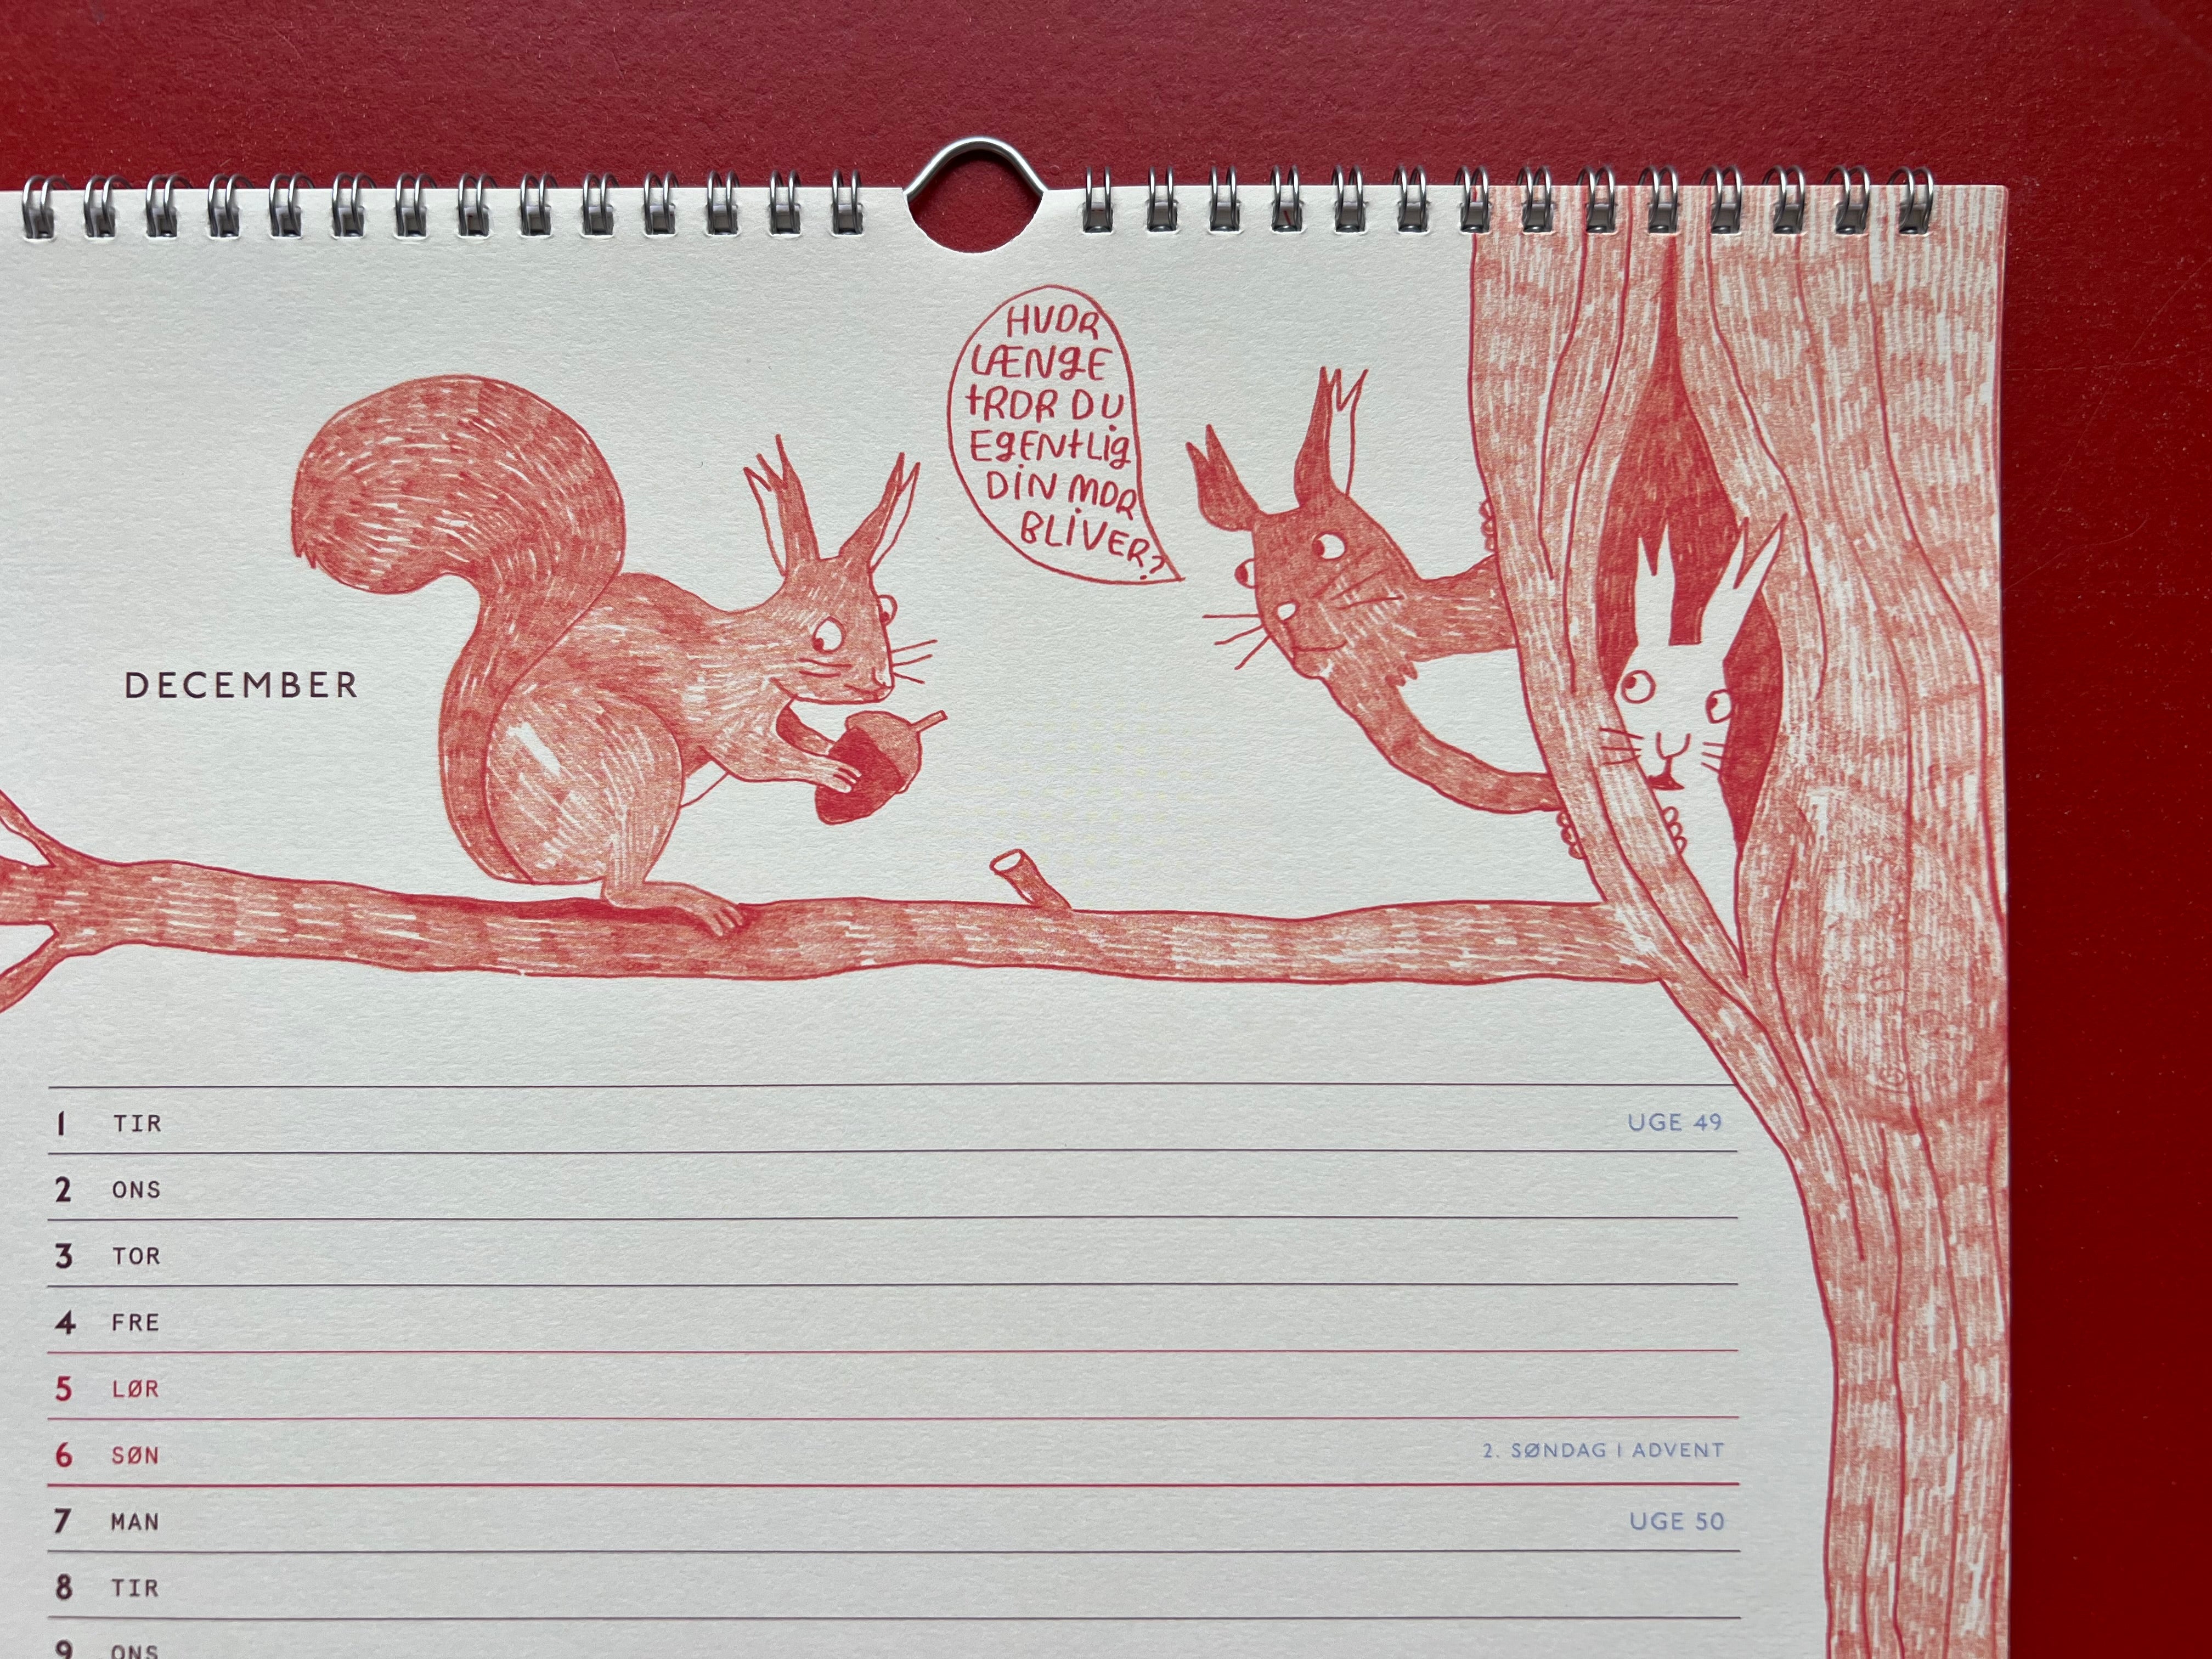 HVOR
LÆNGE
tROR DU
EgENtLig
DiN MOR
BLiVER?
DECEMBER
1 TIR UGE 49
2 ONS
3 TOR
4 FRE
5 LØR
6 SØN 2. SØNDAG I ADVENT
7 MAN UGE 50
8 TIR
9 ONS